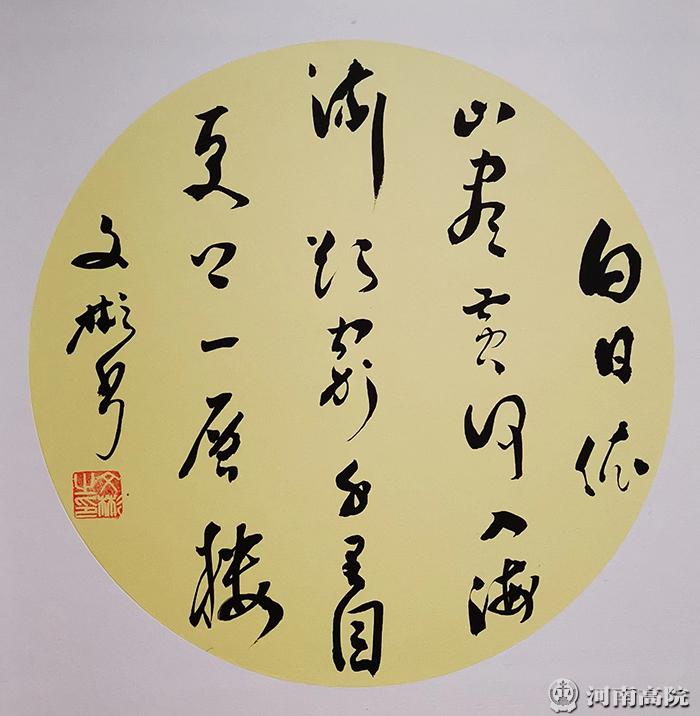 白日依
山尽黄河入海
流欲穷千里目
更上一层楼
文彬书
文彬之印
河南高院